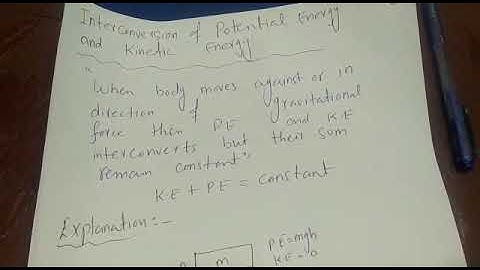 Interconversion of Potential Energy
and Kinetic Energy
"When body moves against or in
direction of gravitational
force then PE and K.E
interconverts but their sum
remain constant"
K.E + P.E = constant
Explanation:-
m
P.E=mgh
K.E=0